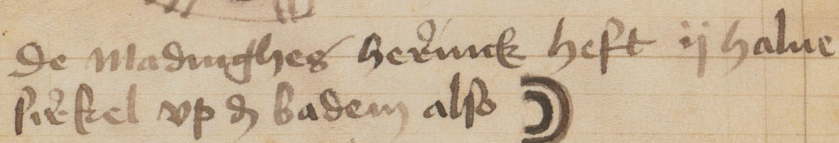 De Madinghes herinck heft ij halue
sirkel vp dē badem also